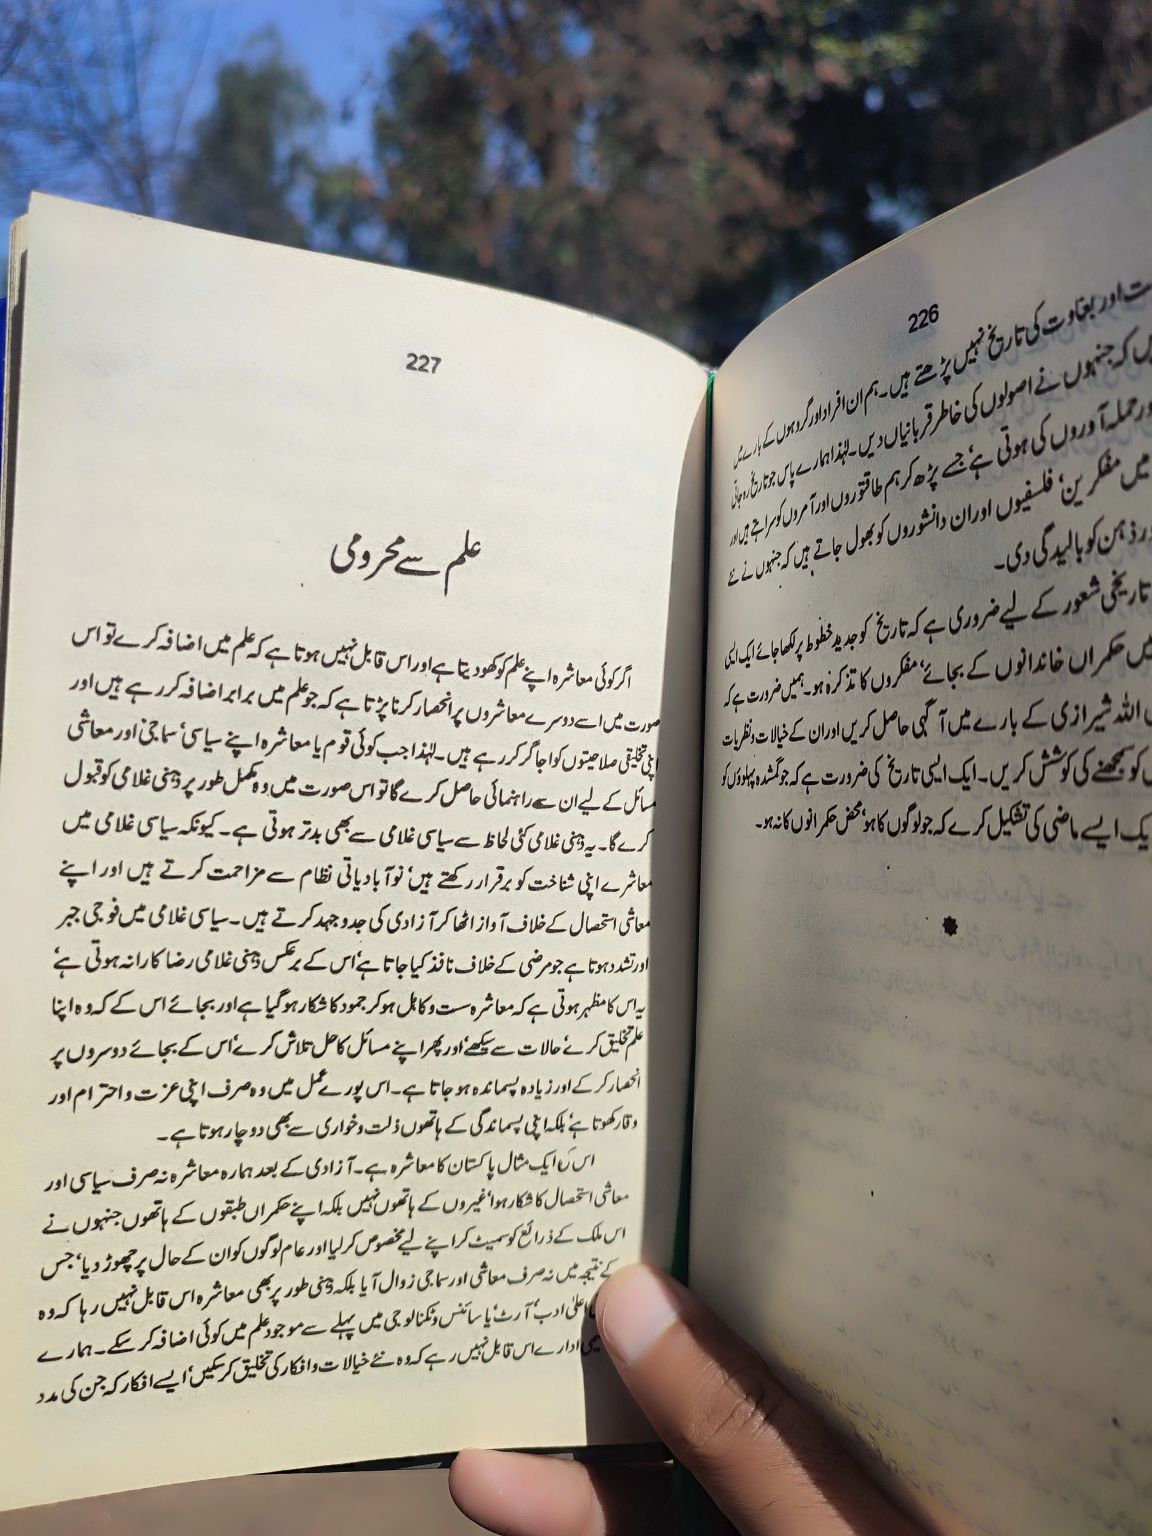 226
ت اور بغاوت کی تاریخ نہیں پڑھتے ہیں۔ ہم ان افراد اور گروہوں کے بارے میں
کہ جنہوں نے اصولوں کی خاطر قربانیاں دیں۔ لہٰذا ہمارے پاس جو تاریخ رہ جاتی
حملہ آوروں کی ہوتی ہے، جسے پڑھ کر ہم طاقتوروں اور آمروں کو سراہتے ہیں اور
میں مفکرین، فلسفیوں اور ان دانشوروں کو بھول جاتے ہیں کہ جنہوں نے نئے
ذہن کو بالیدگی دی۔
تاریخی شعور کے لیے ضروری ہے کہ تاریخ کو جدید خطوط پر لکھا جائے ایک ایسی
حکمراں خاندانوں کے بجائے، مفکروں کا تذکرہ ہو۔ ہمیں ضرورت ہے کہ
اللہ شیرازی کے بارے میں آگہی حاصل کریں اور ان کے خیالات و نظریات
کو سمجھنے کی کوشش کریں۔ ایک ایسی تاریخ کی ضرورت ہے کہ جو گمشدہ پہلوؤں کو
یک ایسے ماضی کی تشکیل کرے کہ جو لوگوں کا ہو، محض حکمرانوں کا نہ ہو۔
227
علم سے محرومی
اگر کوئی معاشرہ اپنے علم کو کھو دیتا ہے اور اس قابل نہیں ہوتا ہے کہ علم میں اضافہ کرے تو اس
صورت میں اسے دوسرے معاشروں پر انحصار کرنا پڑتا ہے کہ جو علم میں برابر اضافہ کر رہے ہیں اور
اپنی تخلیقی صلاحیتوں کو اجاگر کر رہے ہیں۔ لہٰذا جب کوئی قوم یا معاشرہ اپنے سیاسی، سماجی اور معاشی
مسائل کے لیے ان سے راہنمائی حاصل کرے گا تو اس صورت میں وہ مکمل طور پر ذہنی غلامی کو قبول
کرے گا۔ یہ ذہنی غلامی کئی لحاظ سے سیاسی غلامی سے بھی بدتر ہوتی ہے۔ کیونکہ سیاسی غلامی میں
معاشرے اپنی شناخت کو برقرار رکھتے ہیں، نوآبادیاتی نظام سے مزاحمت کرتے ہیں اور اپنے
معاشی استحصال کے خلاف آواز اٹھا کر آزادی کی جدوجہد کرتے ہیں۔ سیاسی غلامی میں فوجی جبر
اور تشدد ہوتا ہے جو مرضی کے خلاف نافذ کیا جاتا ہے، اس کے برعکس ذہنی غلامی رضاکارانہ ہوتی ہے،
یہ اس کا مظہر ہوتی ہے کہ معاشرہ سست و کاہل ہو کر جمود کا شکار ہو گیا ہے اور بجائے اس کے کہ وہ اپنا
علم تخلیق کرے، حالات سے سیکھے، اور پھر اپنے مسائل کا حل تلاش کرے، اس کے بجائے دوسروں پر
انحصار کر کے اور زیادہ پسماندہ ہو جاتا ہے۔ اس پورے عمل میں وہ صرف اپنی عزت و احترام اور
وقار کھوتا ہے، بلکہ اپنی پسماندگی کے ہاتھوں ذلت و خواری سے بھی دوچار ہوتا ہے۔
اس کی ایک مثال پاکستان کا معاشرہ ہے۔ آزادی کے بعد ہمارہ معاشرہ نہ صرف سیاسی اور
معاشی استحصال کا شکار ہوا، غیروں کے ہاتھوں نہیں بلکہ اپنے حکمراں طبقوں کے ہاتھوں جنہوں نے
اس ملک کے ذرائع کو سمیٹ کر اپنے لیے مخصوص کر لیا اور عام لوگوں کو ان کے حال پر چھوڑ دیا، جس
کے نتیجہ میں نہ صرف معاشی اور سماجی زوال آیا بلکہ ذہنی طور پر بھی معاشرہ اس قابل نہیں رہا کہ وہ
اعلیٰ ادب، آرٹ، یا سائنس و ٹکنالوجی میں پہلے سے موجود علم میں کوئی اضافہ کر سکے۔ ہمارے
ادارے اس قابل نہیں رہے کہ وہ نئے خیالات و افکار کی تخلیق کر سکیں، ایسے افکار کہ جن کی مدد